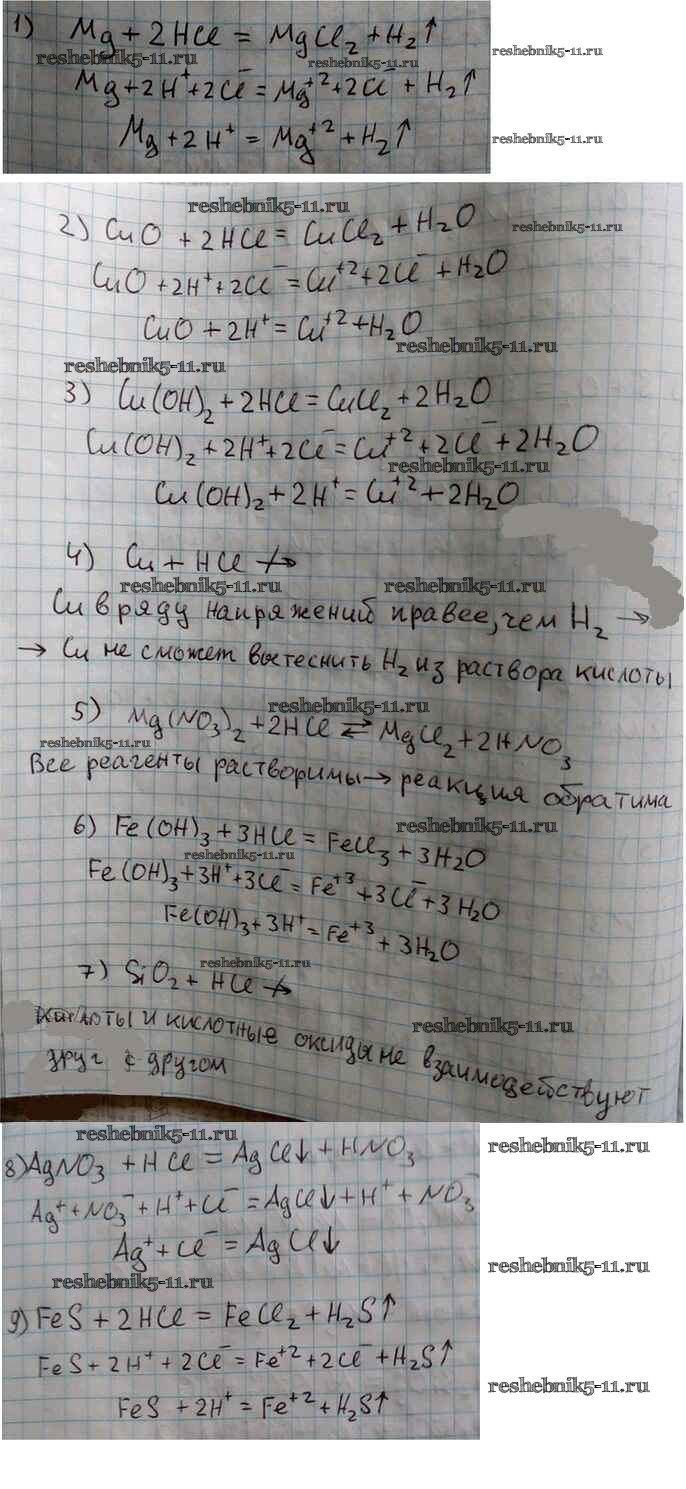 1) Mg + 2HCl = MgCl₂ + H₂↑
reshebnik5-11.ru reshebnik5-11.ru reshebnik5-11.ru
Mg + 2H⁺ + 2Cl⁻ = Mg⁺² + 2Cl⁻ + H₂↑
Mg + 2H⁺ = Mg⁺² + H₂↑
reshebnik5-11.ru
reshebnik5-11.ru
2) CuO + 2HCl = CuCl₂ + H₂O
reshebnik5-11.ru
CuO + 2H⁺ + 2Cl⁻ = Cu⁺² + 2Cl⁻ + H₂O
CuO + 2H⁺ = Cu⁺² + H₂O
reshebnik5-11.ru
reshebnik5-11.ru
3) Cu(OH)₂ + 2HCl = CuCl₂ + 2H₂O
Cu(OH)₂ + 2H⁺ + 2Cl⁻ = Cu⁺² + 2Cl⁻ + 2H₂O
reshebnik5-11.ru
Cu(OH)₂ + 2H⁺ = Cu⁺² + 2H₂O
4) Cu + HCl ↛
reshebnik5-11.ru reshebnik5-11.ru
Cu в ряду напряжений правее, чем H₂ →
→ Cu не сможет вытеснить H₂ из раствора кислоты
reshebnik5-11.ru
5) Mg(NO₃)₂ + 2HCl ⇄ MgCl₂ + 2HNO₃
reshebnik5-11.ru
Все реагенты растворимы → реакция обратима
6) Fe(OH)₃ + 3HCl = FeCl₃ + 3H₂O
reshebnik5-11.ru
reshebnik5-11.ru
Fe(OH)₃ + 3H⁺ + 3Cl⁻ = Fe⁺³ + 3Cl⁻ + 3H₂O
Fe(OH)₃ + 3H⁺ = Fe⁺³ + 3H₂O
reshebnik5-11.ru
7) SiO₂ + HCl ↛
reshebnik5-11.ru
Кислоты и кислотные оксиды не взаимодействуют
друг с другом
reshebnik5-11.ru
reshebnik5-11.ru
8) AgNO₃ + HCl = AgCl↓ + HNO₃
Ag⁺ + NO₃⁻ + H⁺ + Cl⁻ = AgCl↓ + H⁺ + NO₃⁻
Ag⁺ + Cl⁻ = AgCl↓
reshebnik5-11.ru
reshebnik5-11.ru
9) FeS + 2HCl = FeCl₂ + H₂S↑
FeS + 2H⁺ + 2Cl⁻ = Fe⁺² + 2Cl⁻ + H₂S↑
reshebnik5-11.ru
FeS + 2H⁺ = Fe⁺² + H₂S↑